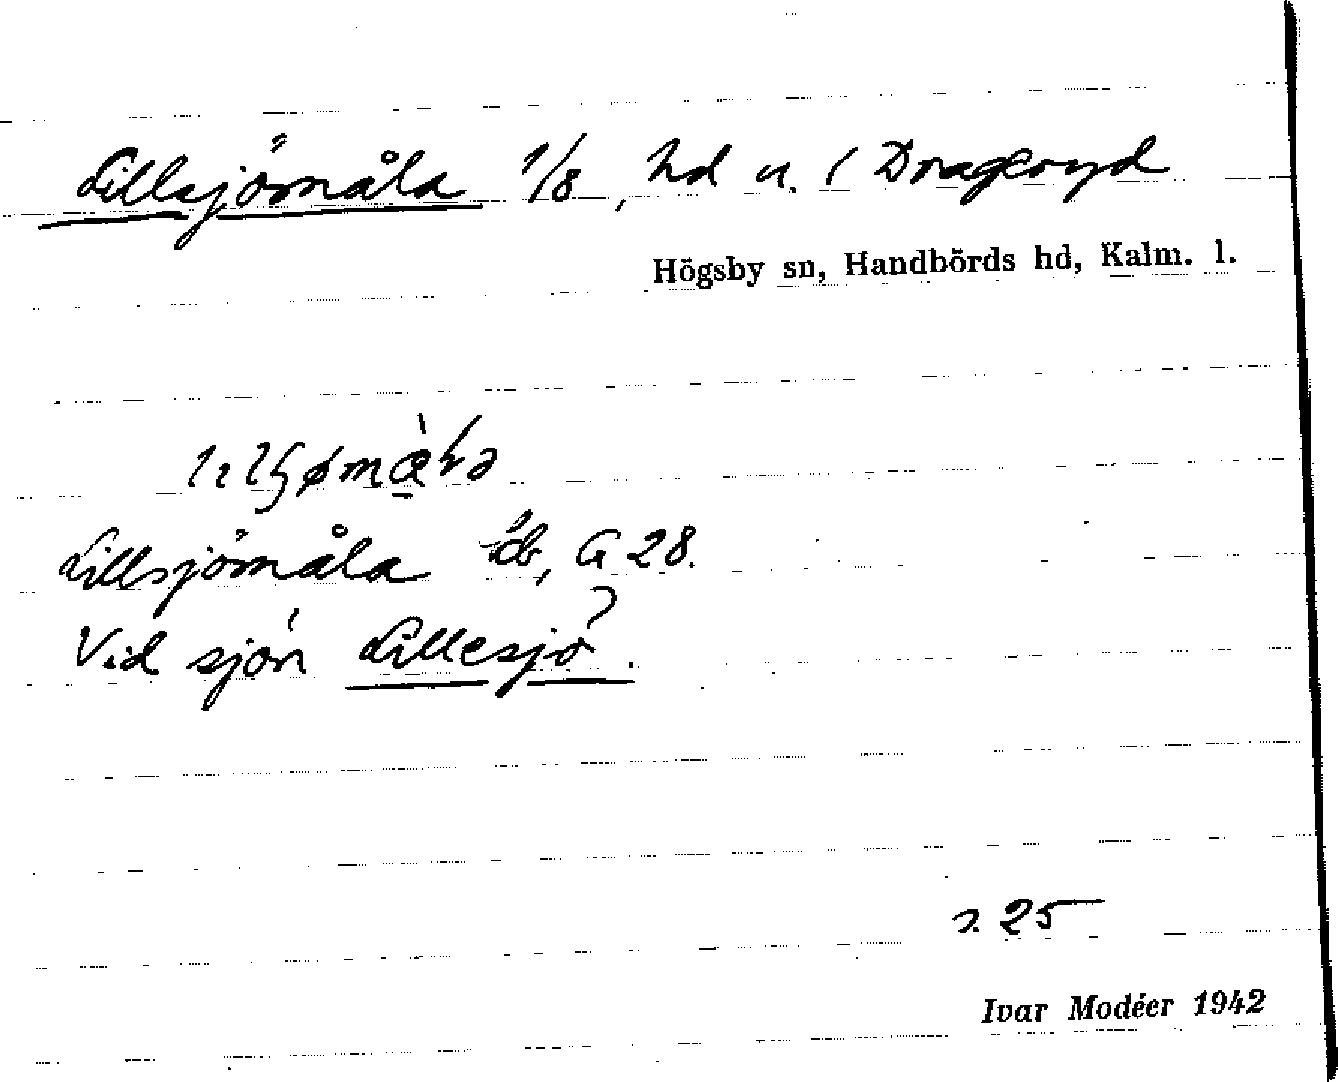 Lillsjömåla 1/8, hd u. / Drageryd
Högsby sn, Handbörds hd, Kalm. l.
Lillsjömåla Jb, G 28.
Vid sjön Lillesjö.
s. 25
Ivar Modéer 1942